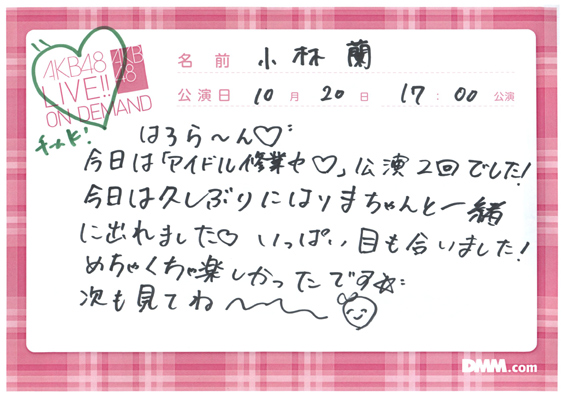 AKB48
LIVE!!
ON DEMAND
AKB
48
名前 小林蘭
公演日 10月 20日 17:00公演
チームK!
はろら〜ん♡
今日は「アイドル修業中♡」公演2回でした!
今日は久しぶりにはりまちゃんと一緒
に出れました♡ いっぱい目も合いました!
めちゃくちゃ楽しかったです☆
次も見てね〜〜〜
DMM.com